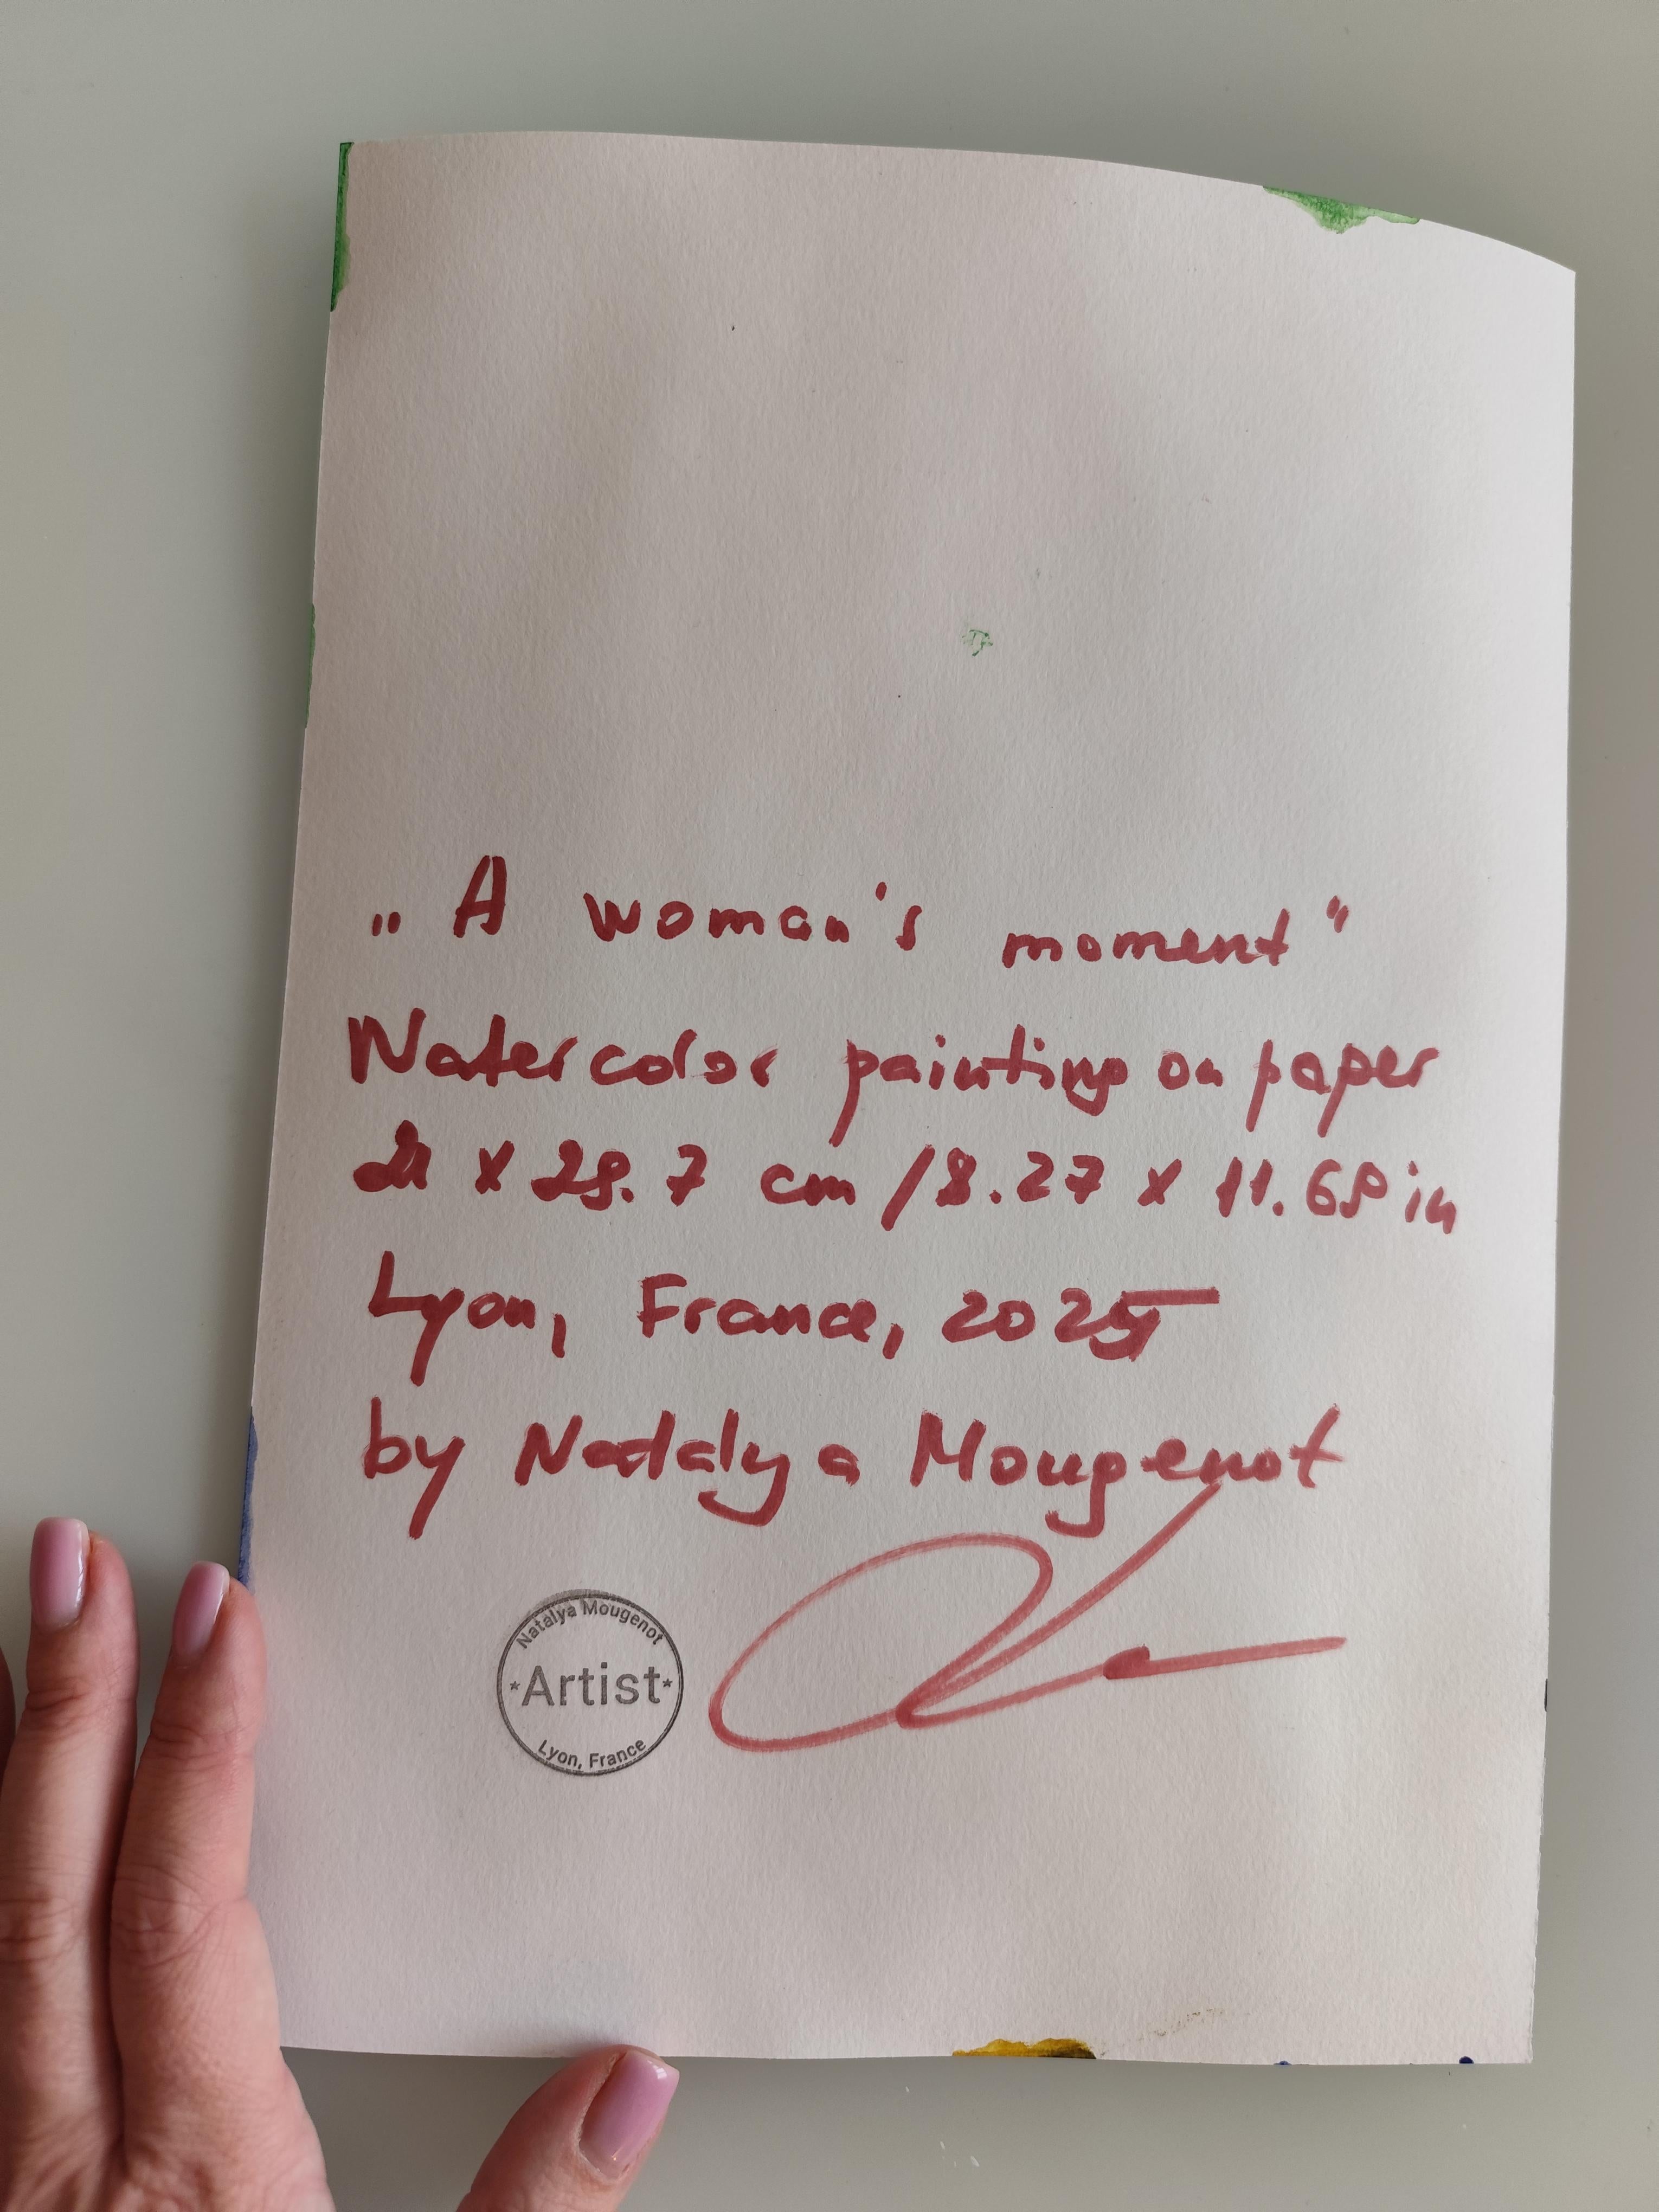 „A woman's moment"
Watercolor painting on paper
21 x 29.7 cm / 8.27 x 11.69 in
Lyon, France, 2025
by Natalya Mougenot
Natalya Mougenot
*Artist*
Lyon, France